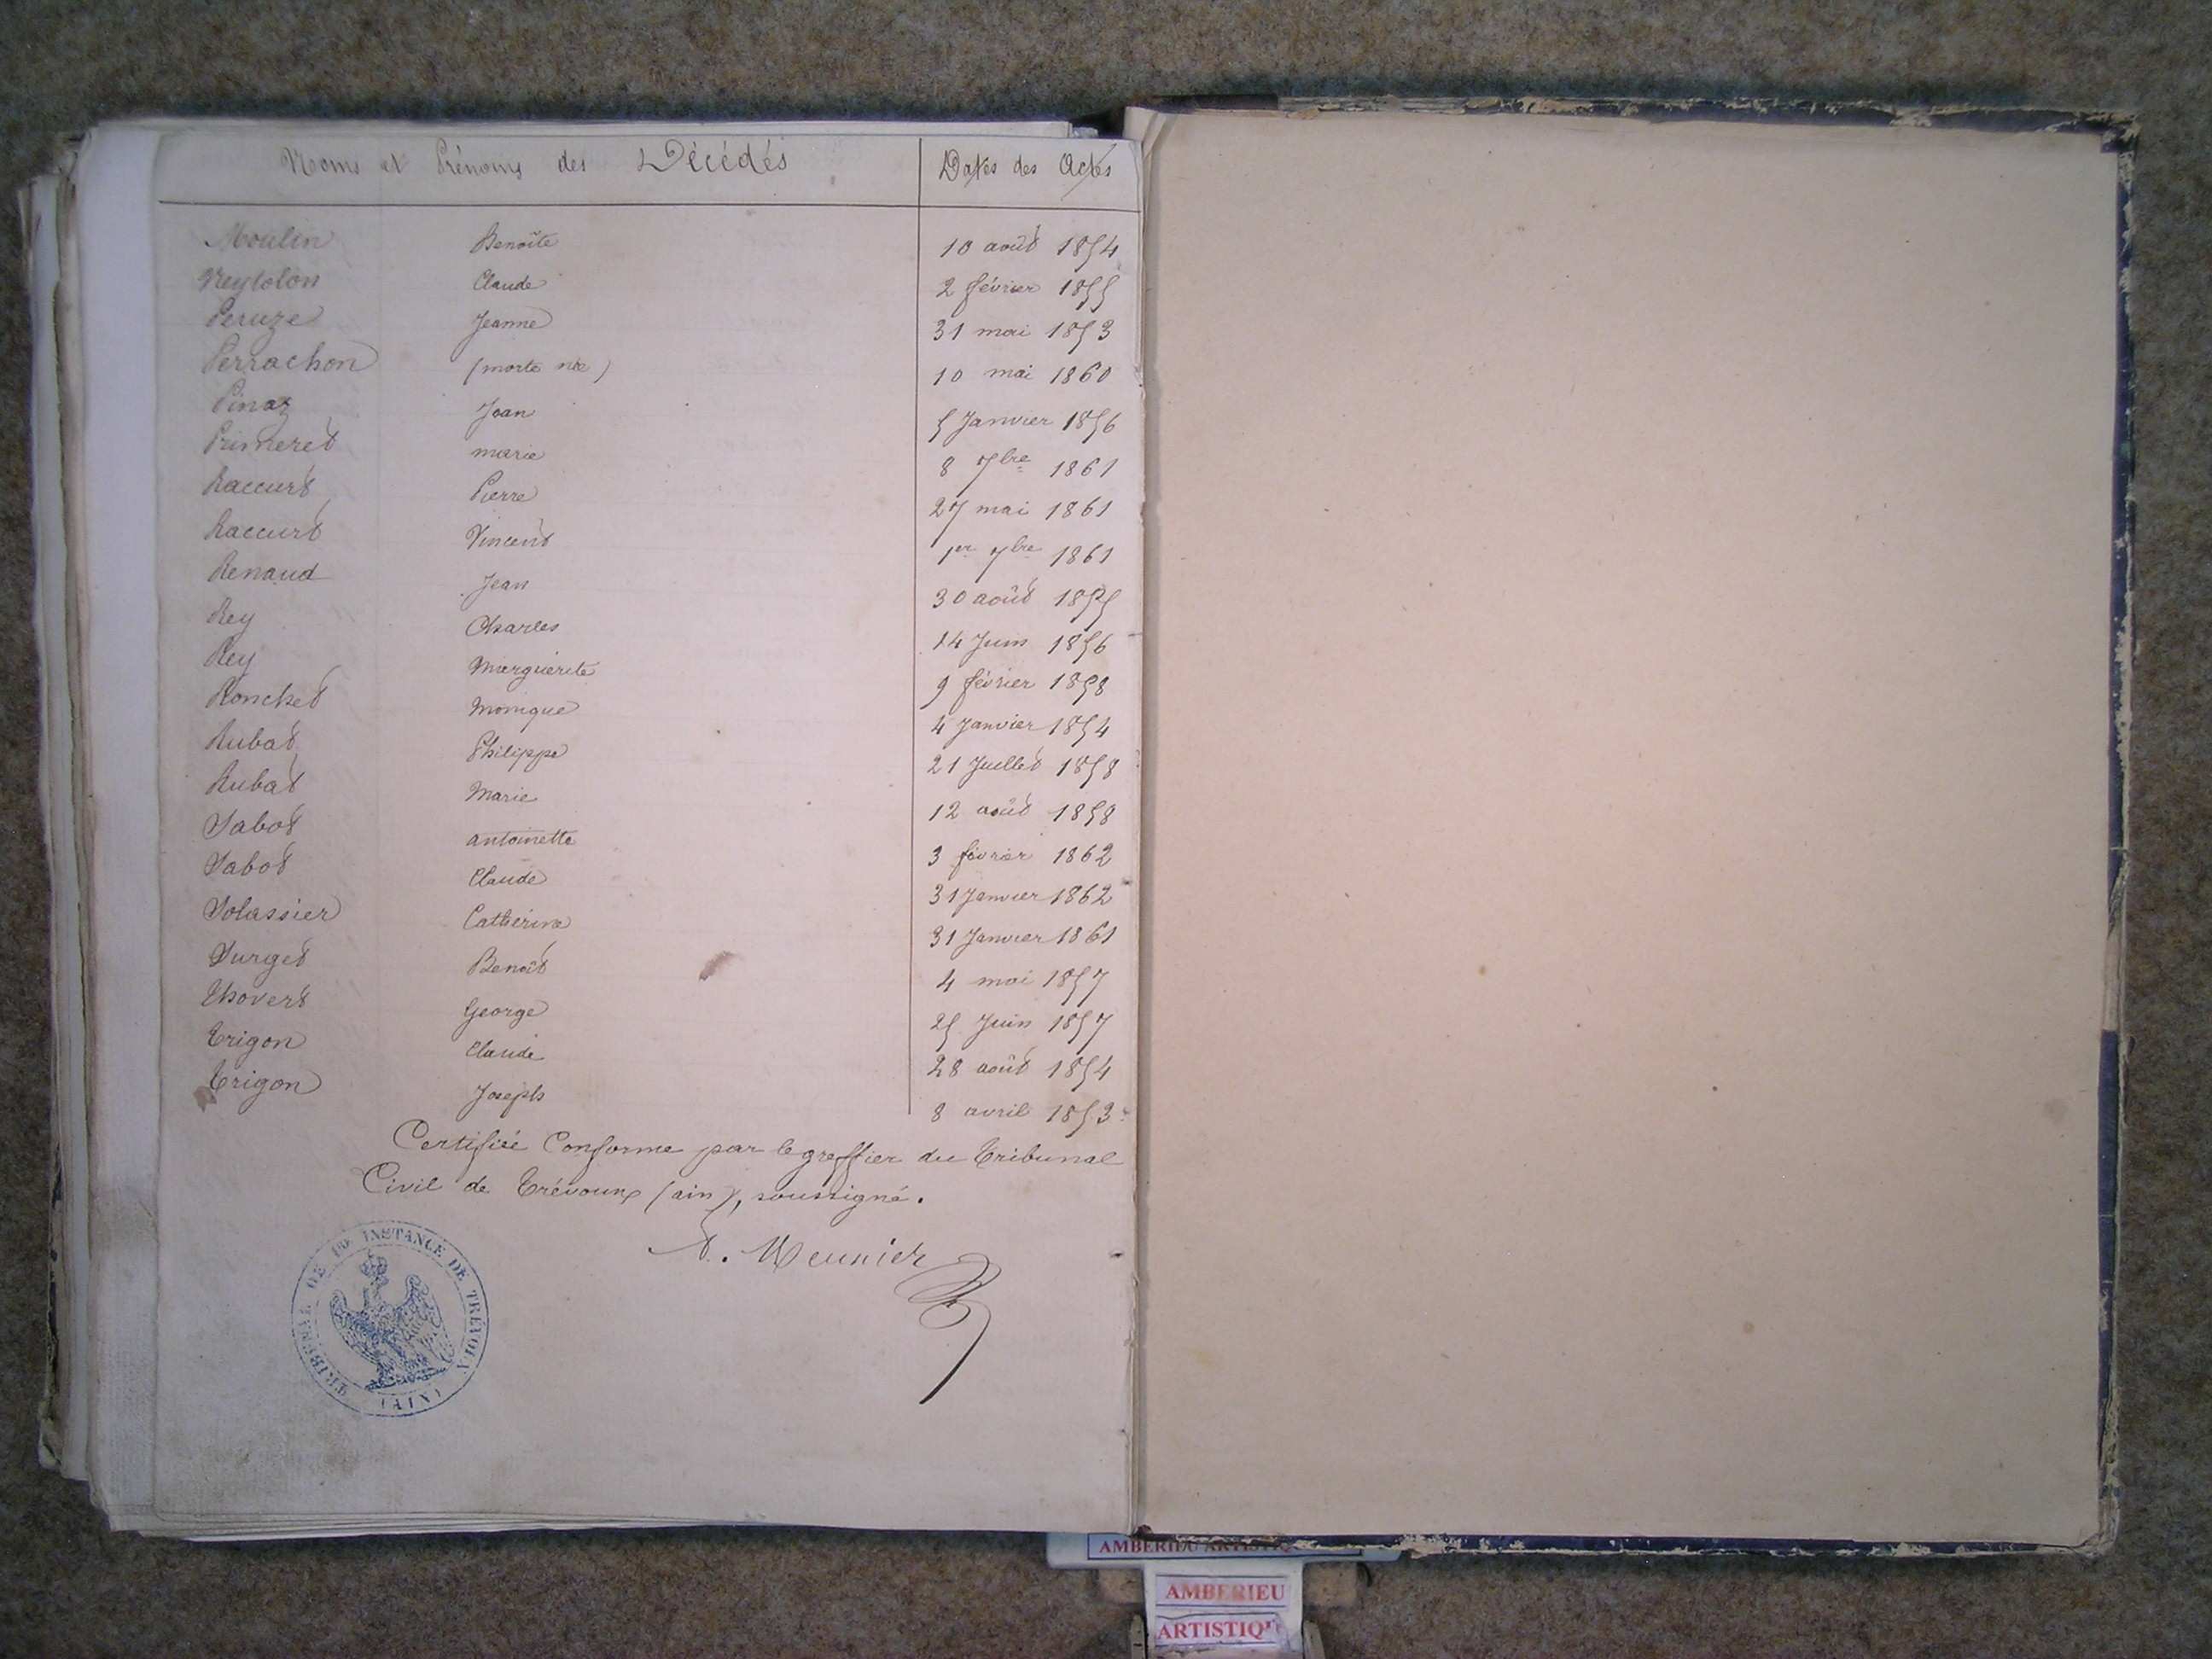 Noms et Prénoms des Décédés Dates des Actes
Moulin Benoîte 10 août 1854
Neylolon Claude 2 février 1855
Peruze Jeanne 31 mai 1853
Perrachon (morte née) 10 mai 1860
Pinaz Jean 5 Janvier 1856
Primeret marie 8 7bre 1861
Raccurt Pierre 27 mai 1861
Raccurt Vincent 1er 7bre 1861
Renaud Jean 30 août 1855
Rey Charles 14 Juin 1856
Rey Marguerite 9 février 1858
Ronchet Monique 4 Janvier 1854
Rubat Philippe 21 Juillet 1858
Rubat Marie 12 août 1858
Sabot antoinette 3 février 1862
Sabot Claude 31 Janvier 1862
Solassier Catherine 31 Janvier 1861
Surget Benoît 4 mai 1857
Thovert George 25 Juin 1857
Trigon Claude 28 août 1854
Trigon Joseph 8 avril 1853
Certifié Conforme par le greffier du Tribunal
Civil de Trévoux (ain), soussigné.
Meunier
TRIBUNAL DE 1RE INSTANCE DE TREVOUX (AIN)
AMBERIEU ARTISTIQ
AMBERIEU
ARTISTIQU